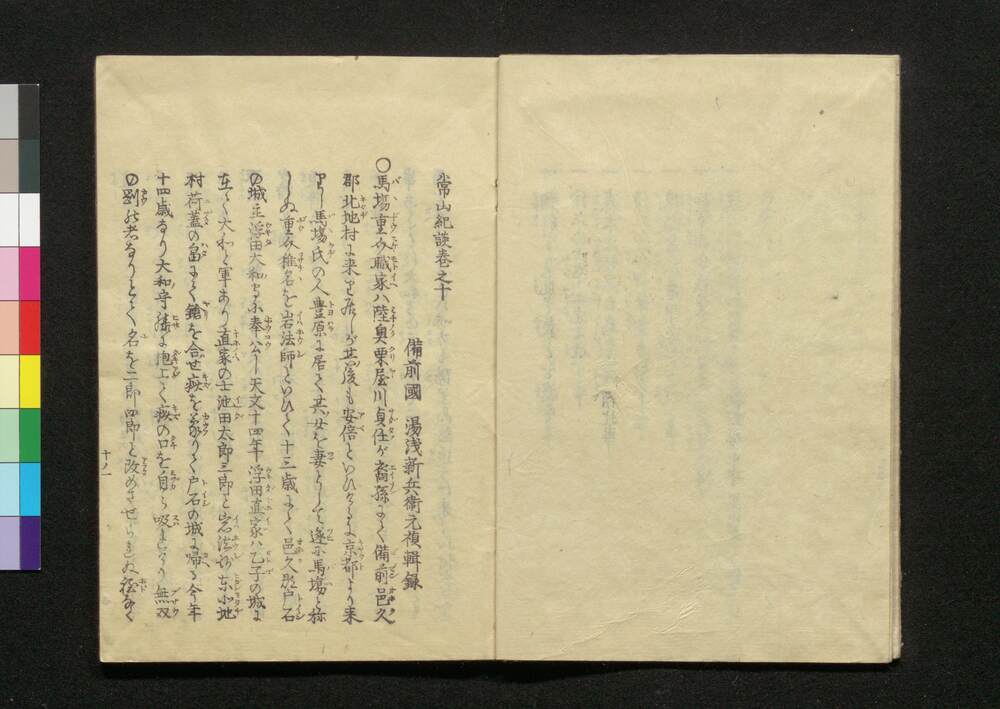 常山紀談巻之十
備前國 湯浅新兵衛元禎輯録
〇馬塲重介職家ハ陸奥栗屋川貞任が裔孫にて備前邑久
郡北地村に来り居しが其後も安倍といひけるに京都より来
りし馬塲氏の人豊原に居て其女を妻として遂に馬塲と称
しぬ重介椎名を岩法師といひて十三歳にて邑久郡戸石
の城主浮田大和守に奉公し天文十四年浮田直家ハ乙子の城に
在て大和と軍あり直家の士池田太郎三郎と岩法師東小地
村荷蓋の畠にて鎗を合せ疵を蒙りて戸石の城に帰る今年
十四歳なり大和守膝に抱上て疵の口を自ら吸はれけり無双
の剛の者なりとて名を二郎四郎と改めさせられぬ程なく
十ノ一